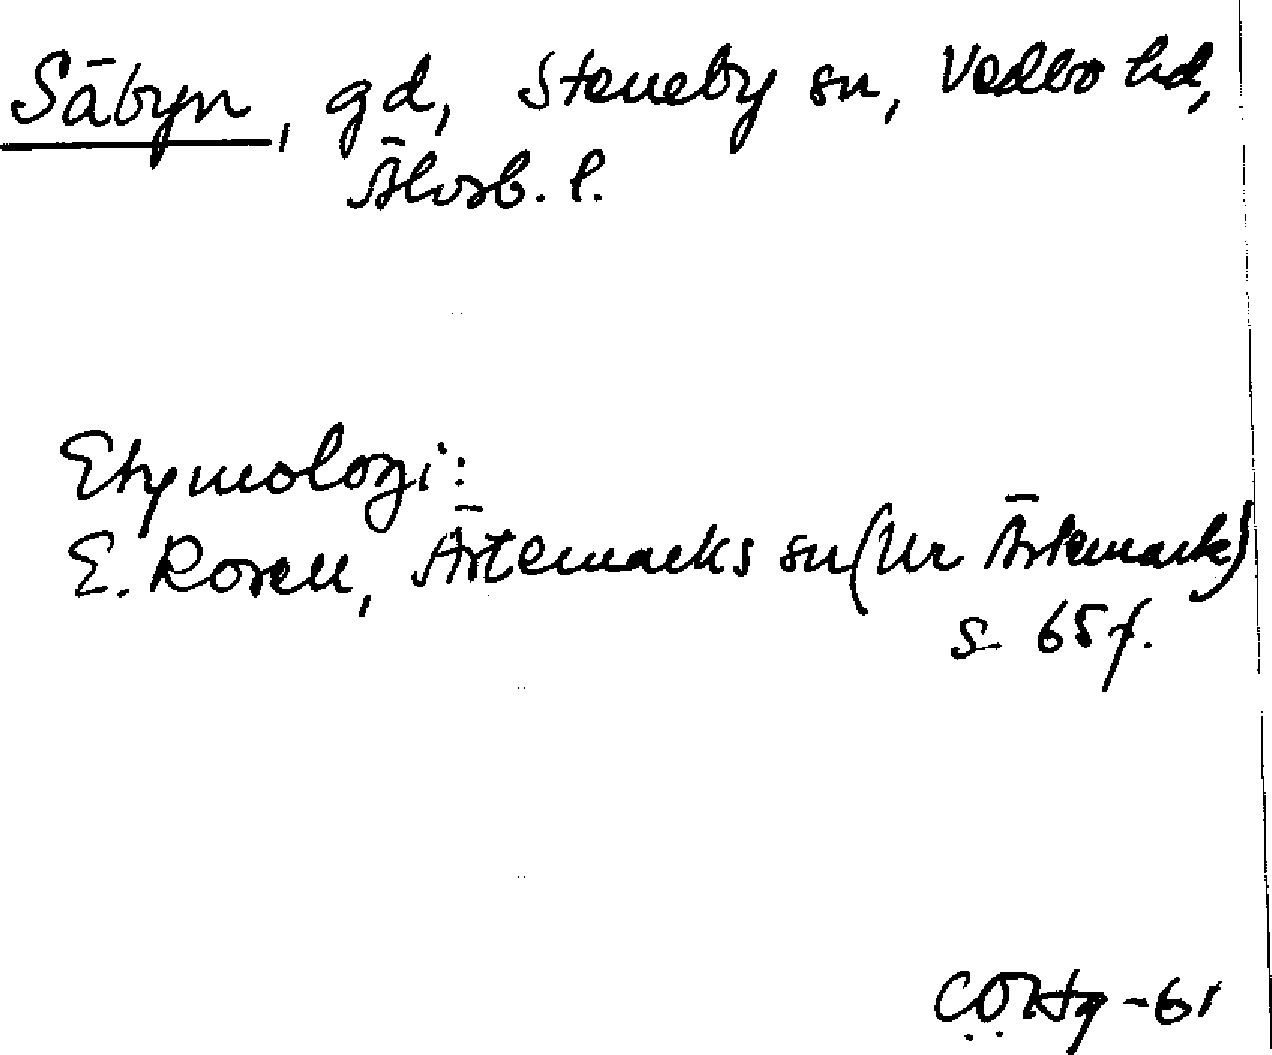 Säbyn, gd, Steneby sn, Vedbo hd,
Älvsb. l.
Etymologi:
E. Rosell, Ärtemarks sn (Ur Ärtemark)
s. 65 f.
-61